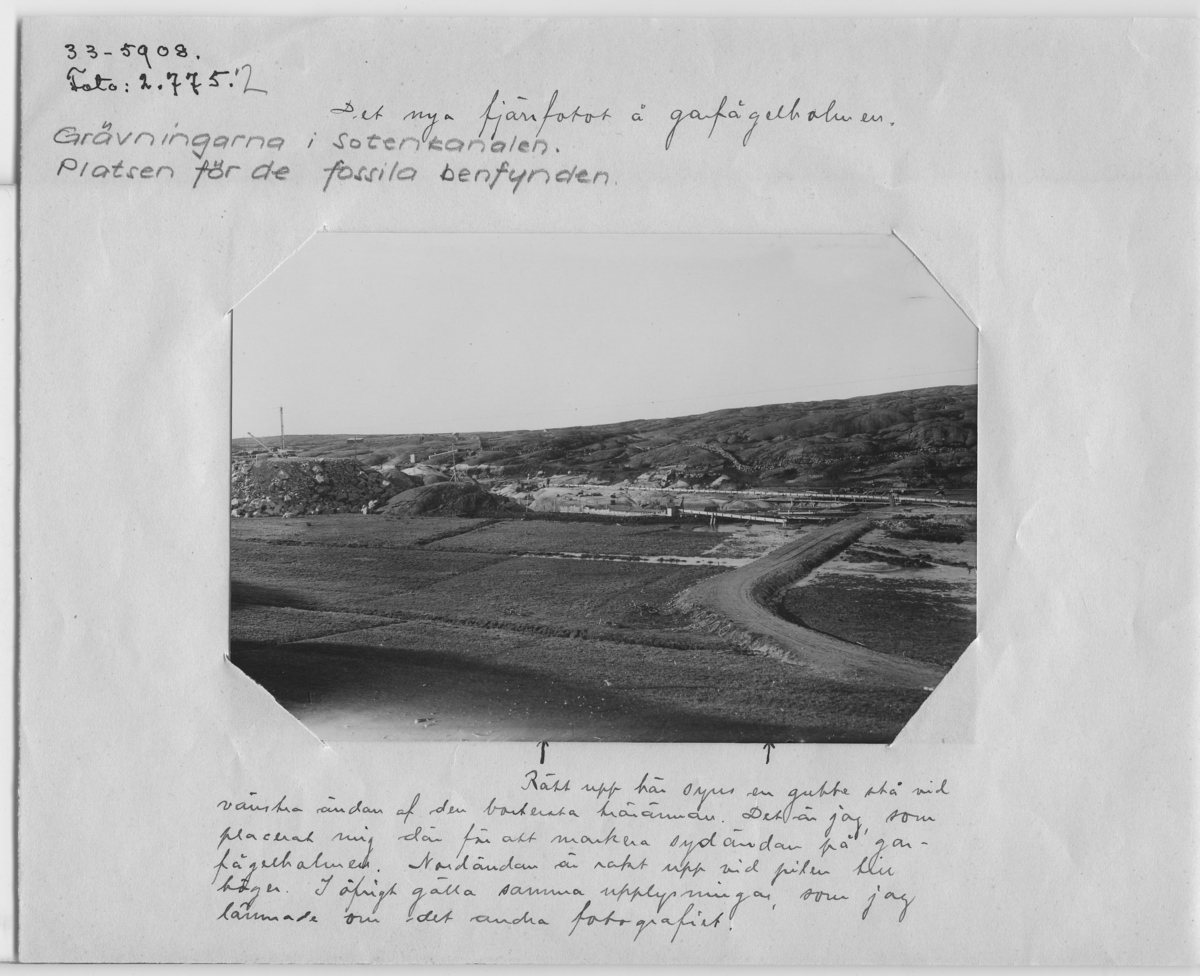 33-5908.
Foto: 2.775:2
Det nya fjärrfotot å garfågelholmen.
Grävningarna i Sotenkanalen.
Platsen för de fossila benfynden.
Rätt upp här synes en gubbe stå vid
vänstra ändan af den bortersta trärännan. Det är jag, som
placerat mig där för att markera sydändan på gar-
fågelholmen. Nordändan är rakt upp vid pilen till
höger. I öfrigt gälla samma upplysningar, som jag
lämnade om det andra fotografiet.